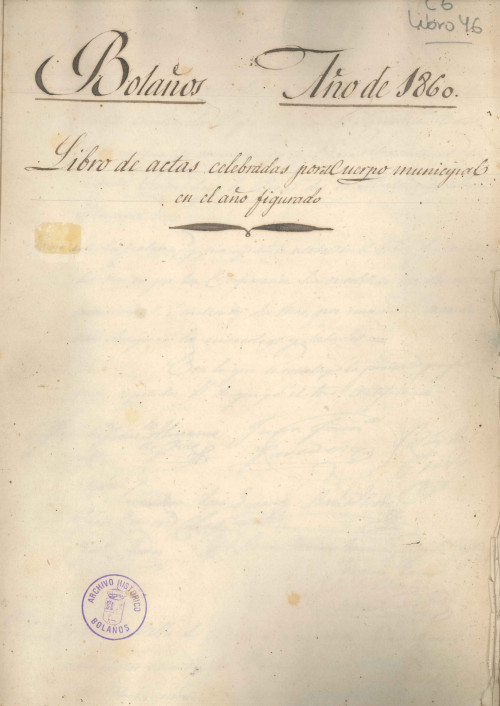 C6
Libro 46
Bolaños Año de 1860.
Libro de actas celebradas por el Cuerpo municipal
en el año figurado
ARCHIVO HISTORICO
BOLAÑOS